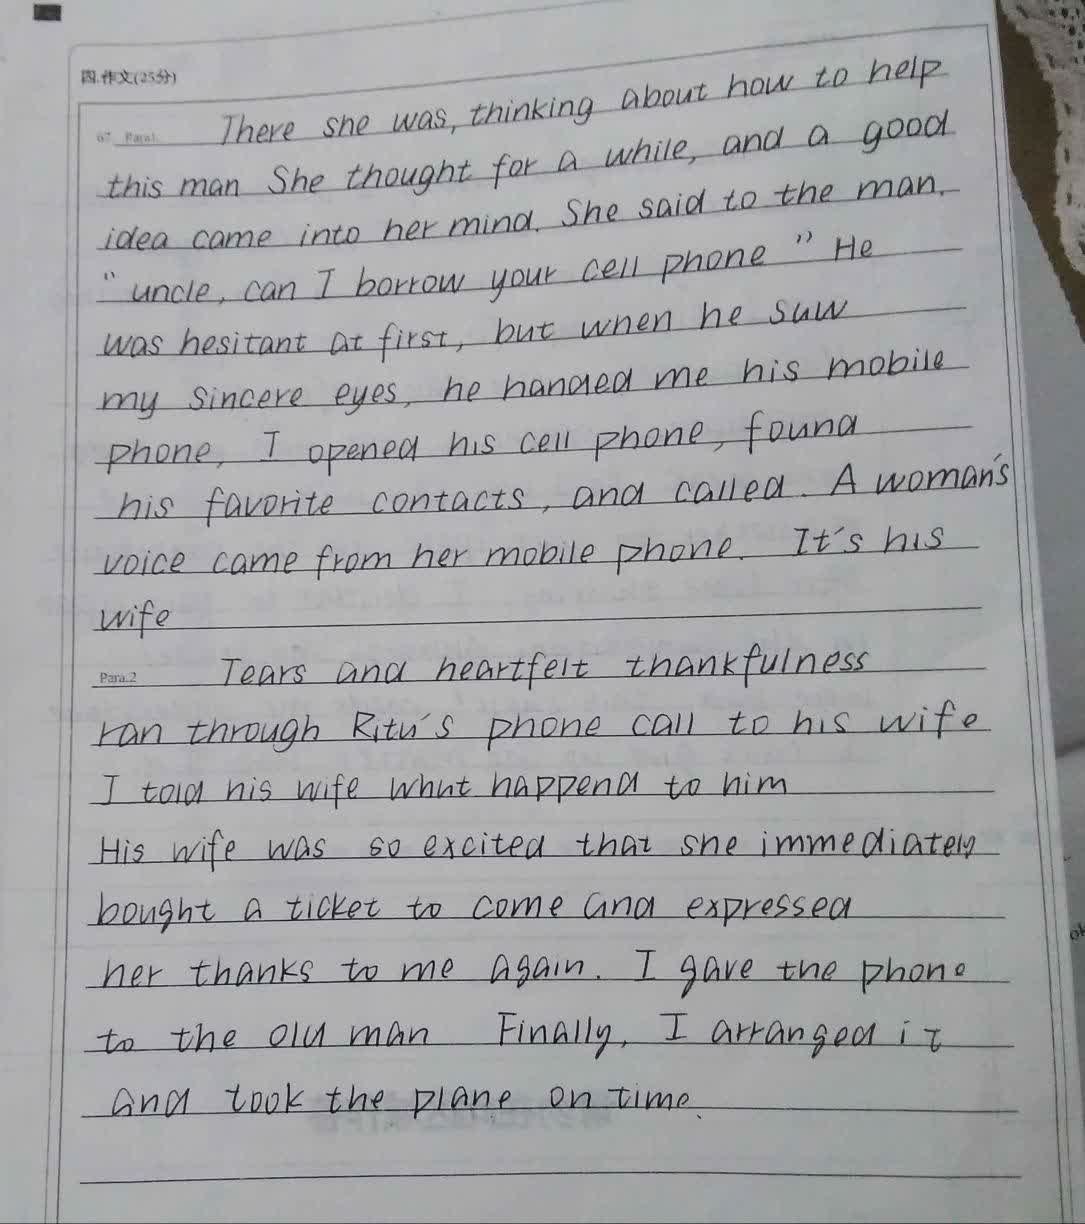 四.作文(25分)
67. Para1. There she was, thinking about how to help
this man She thought for a while, and a good
idea came into her mind. She said to the man.
"uncle, can I borrow your cell phone" He
was hesitant at first, but when he saw
my sincere eyes, he handed me his mobile
phone, I opened his cell phone, found
his favorite contacts, and called. A woman's
voice came from her mobile phone. It's his
wife
Para.2 Tears and heartfelt thankfulness
ran through Ritu's phone call to his wife
I told his wife what happend to him
His wife was so excited that she immediately
bought a ticket to come and expressed
her thanks to me again. I gave the phone
to the old man Finally, I arranged it
and took the plane on time.